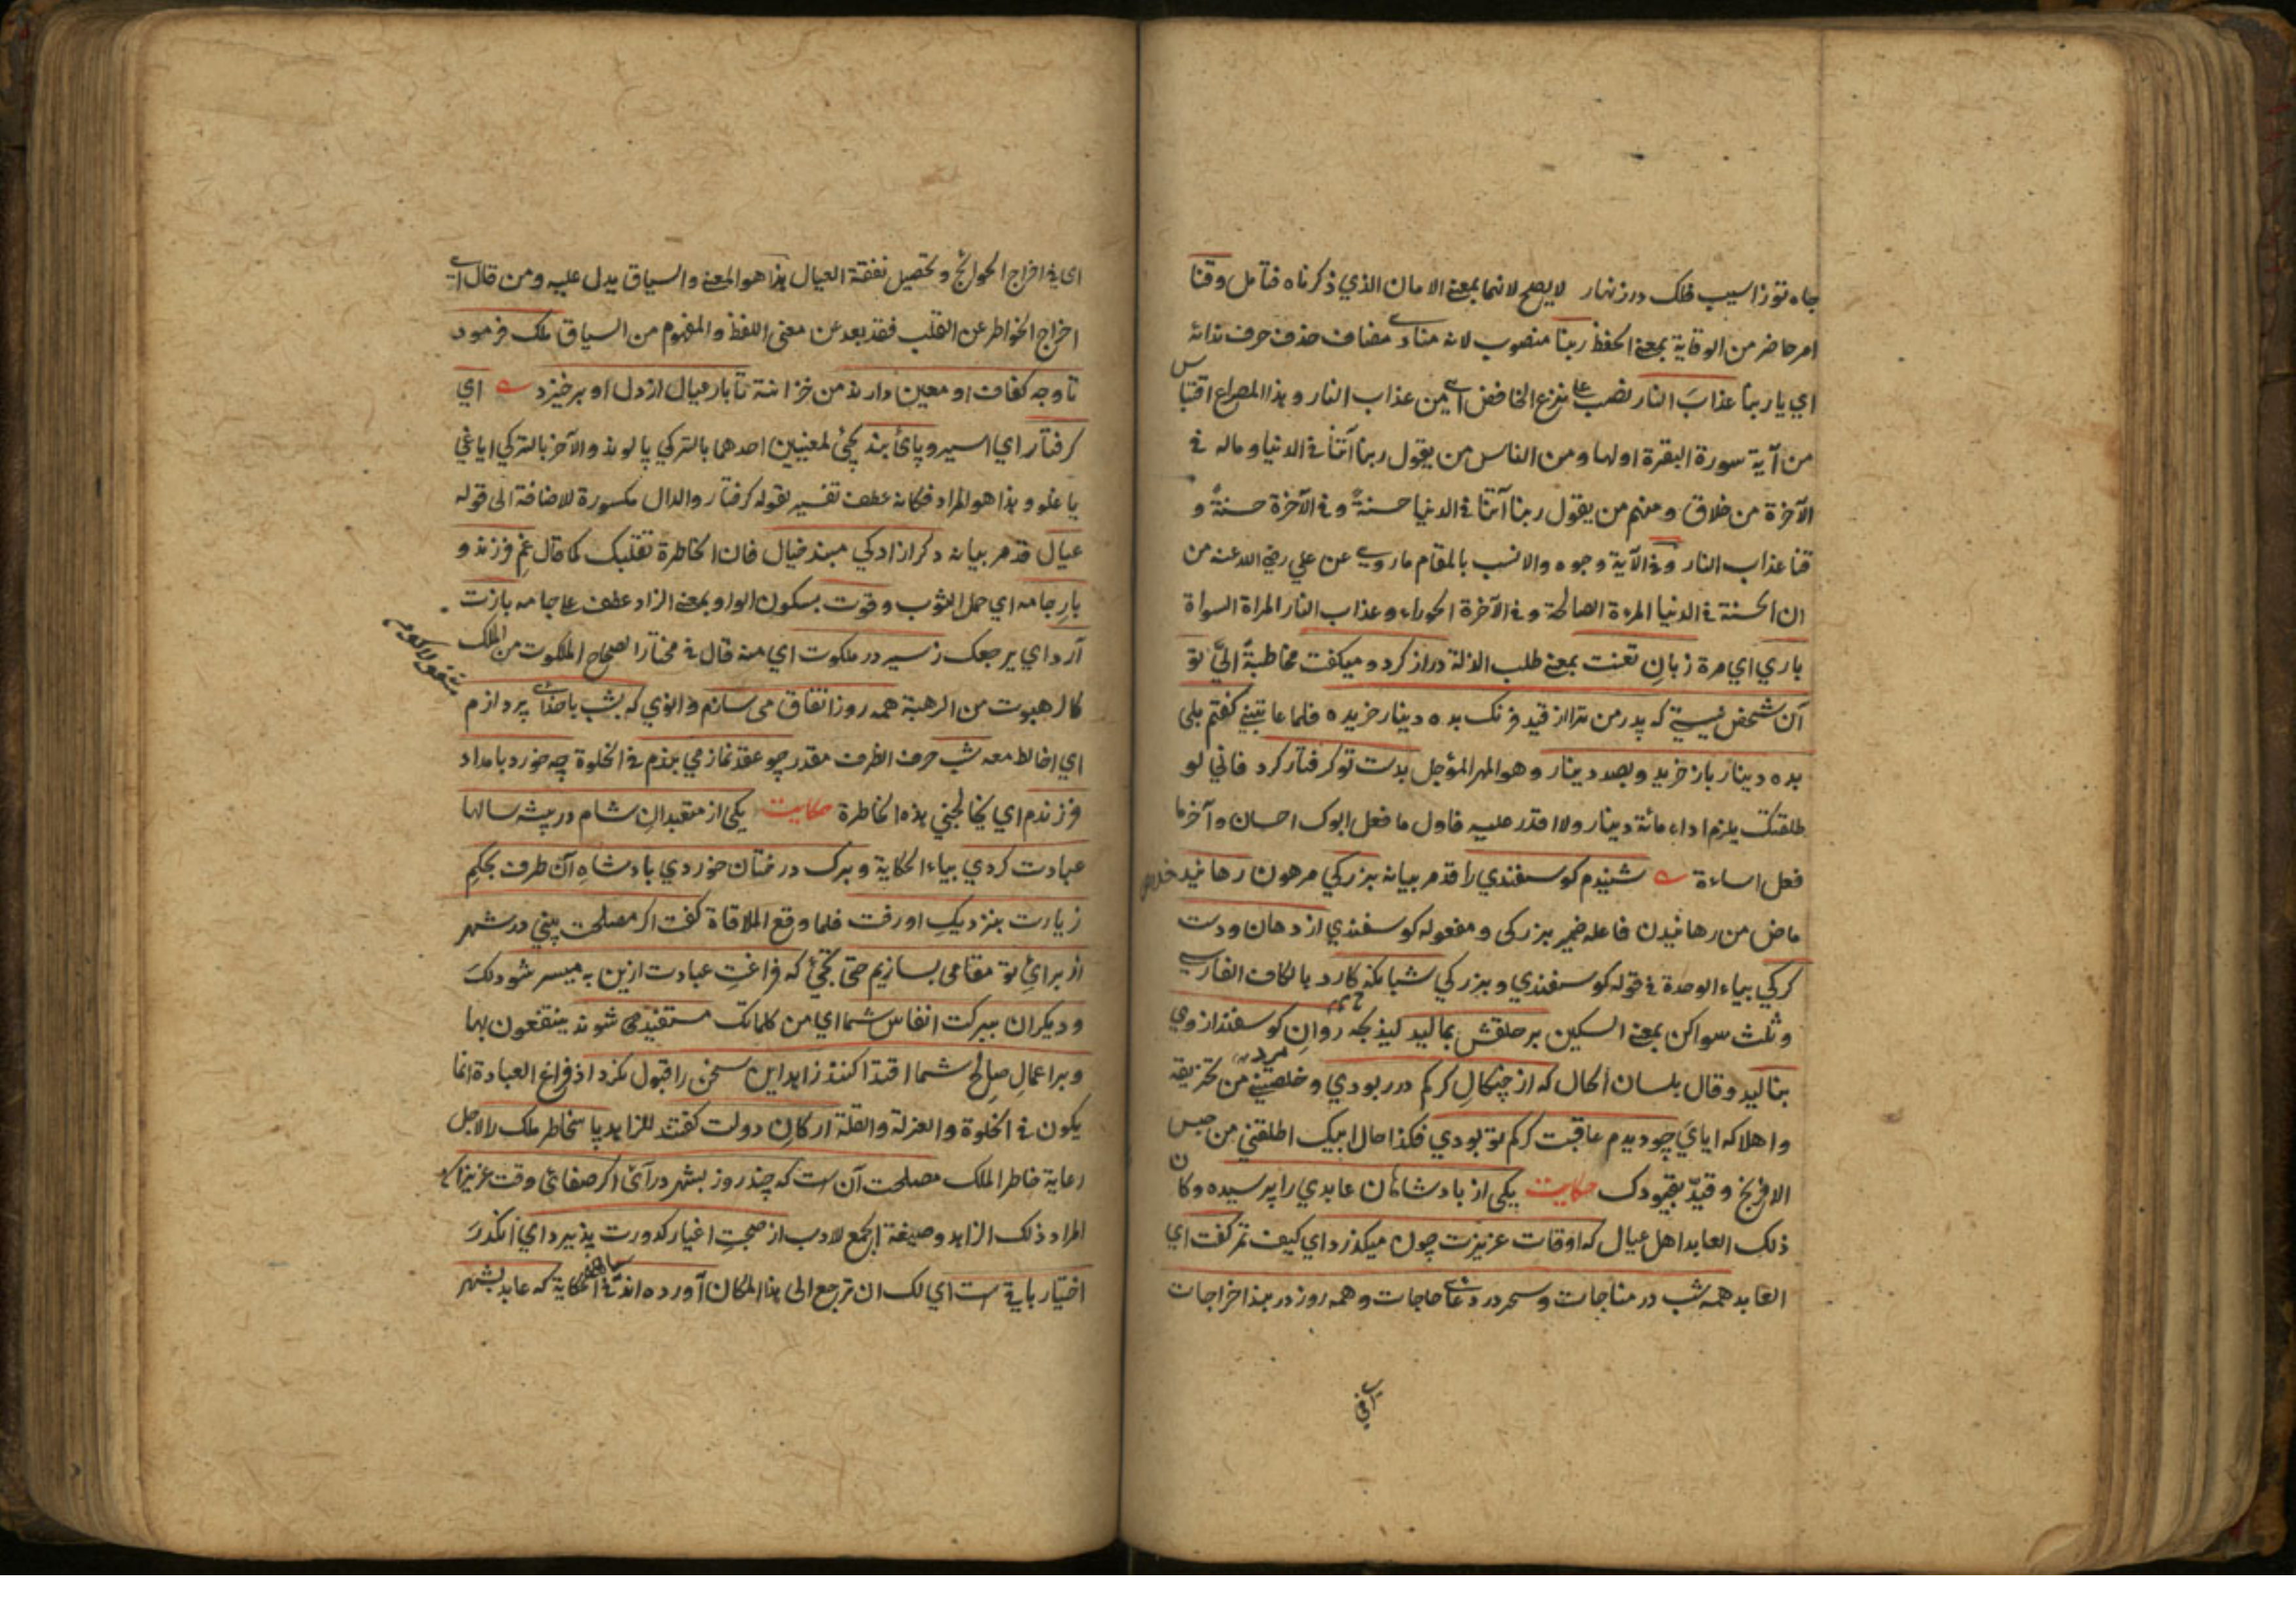 جاه تو ز اسيب فلك در زنهار لا يصح لانها بمعنى الامان الذي ذكرناه فتأمل وقنا
امر حاضر من الوقاية بمعنى الحفظ ربنا منصوب لانه منادى مضاف حذف حرف ندائه
اي يا ربنا عذابَ النار نصب على نزع الخافض اي من عذاب النار وهذا المصراع اقتباس
من آية سورة البقرة اولها ومن الناس من يقول ربنا آتنا في الدنيا وماله في
الآخرة من خلاق ومنهم من يقول ربنا آتنا في الدنيا حسنةً وفي الآخرة حسنةً و
قنا عذاب النار وفي الآية وجوه والانسب بالمقام ما روي عن علي رضي الله عنه من
ان الحسنة في الدنيا المرءة الصالحة وفي الآخرة الحوراء وعذاب النار المراة السواة
باري اي مرة زبانِ تعنت بمعنى طلب الذلة دراز كرد وميكفت مخاطبةً اليّ تو
آن شخص نيستي كه پدر من ترا از قيد فرنك بده دينار خريده فلما عاتبتني كفتم بلى
بده دينار باز خريد وبصد دينار وهو المهر المؤجل بدست تو كرفتار كرد فاني لو
طلقتك يلزم اداء مائة دينار ولا اقدر عليه فاول ما فعل ابوك احسان وآخر ما
فعل اساءة شنيدم كوسفندي را قد مر بيانه بزركي مرهون رهانيد خلاص
ماض من رهانيدن فاعله ضمير بزركى ومفعوله كوسفندي از دهان ودست
كركي بياء الوحدة في قوله كوسفندي وبزركي شبانكه كارد بالكاف الفارسي
وثلث سواكن بمعنى السكين بر حلقش بماليد ليذبحه روانِ كوسفند از وي
بناليد وقال بلسان الحال كه از چنكالِ كركم در ربودي وخلصتني من تخريقه
واهلاكه اياي چو ديدم عاقبت كركم تو بودي فكذا حال ابيك اطلقني من حبس
الافرنج وقيدّ بقيودك حكايت يكى از بادشاهان عابدي را پرسيد وكان
ذلك العابد اهل عيال كه اوقات عزيزت چون ميكذرد اي كيف تمر كفت اي
العابد همه شب در مناجات وسحر در دعاى حاجات وهمه روز در بند اخراجات
اى في
اى في اخراج الحوائج وتحصيل نفقة العيال هذا هو المعنى والسياق يدل عليه ومن قال اى
اخراج الخواطر عن القلب فقد بعد عن معنى اللفظ والمفهوم من السياق ملك فرمود
تا وجه كفاف او معين دارند من خزانته تا بار عيال از دل او برخيزد اي
كرفتار اي اسير وپائ بند يجئ لمعنيين احدهما بالتركي پالوند والآخر بالتركي اياغي
باغلو وهذا هو المراد فكانه عطف تفسير لقوله كرفتار والدال مكسورة للاضافة الى قوله
عيال قد مر بيانه دكر ازادكي مبند خيال فان الخاطرة تقلبك كما قال غمِ فرزند و
بارِ جامه اي حمل الثوب وقوت بسكون الواو بمعنى الزاد عطف على جامه بازت
آرد اي يرجعك ز سير در ملكوت اي منه قال في مختار الصحاح الملكوت من الملك
كالرهبوت من الرهبة همه روز اتفاق مى سازم وانوي كه بشب با خداى پردازم
اي اخالط معه شب حرف الظرف مقدر چو عقد نماز مي بندم في الخلوة چه خورد بامداد
فرزندم اي يخالجني هذه الخاطرة حكايت يكى از متعبدانِ شام در پيشه سالها
عبادت كردي بياء الحكاية وبرك درختان خوردي بادشاهِ آن طرف بحكمِ
زيارت بنزديكِ او رفت فلما وقع الملاقاة كفت اكر مصلحت بيني در شهر
از برائِ تو مقامى بسازيم حتى يجئ كه فراغتِ عبادت ازين به ميسر شود لك
وديكران ببركت انفاس شما اي من كلماتك مستفيد مى شوند ينتفعون بها
وبر اعمالِ صالح شما اقتدا كنند زاهد اين سخن را قبول نكرد اذ فراغ العبادة انما
يكون في الخلوة والعزلة والقلة اركانِ دولت كفتند للزاهد پاسِ خاطر ملك را لاجل
رعاية خاطر الملك مصلحت آن است كه چند روز بشهر در آئى اكر صفائ وقت عزيزان
المراد ذلك الزاهد وصيغة الجمع للادب از صحبتِ اغيار كدورت پذيرد اي انكدرَ
اختيار باقى است اي لك ان ترجع الى هذا المكان آورده اند في الحكاية كه عابد بشهر